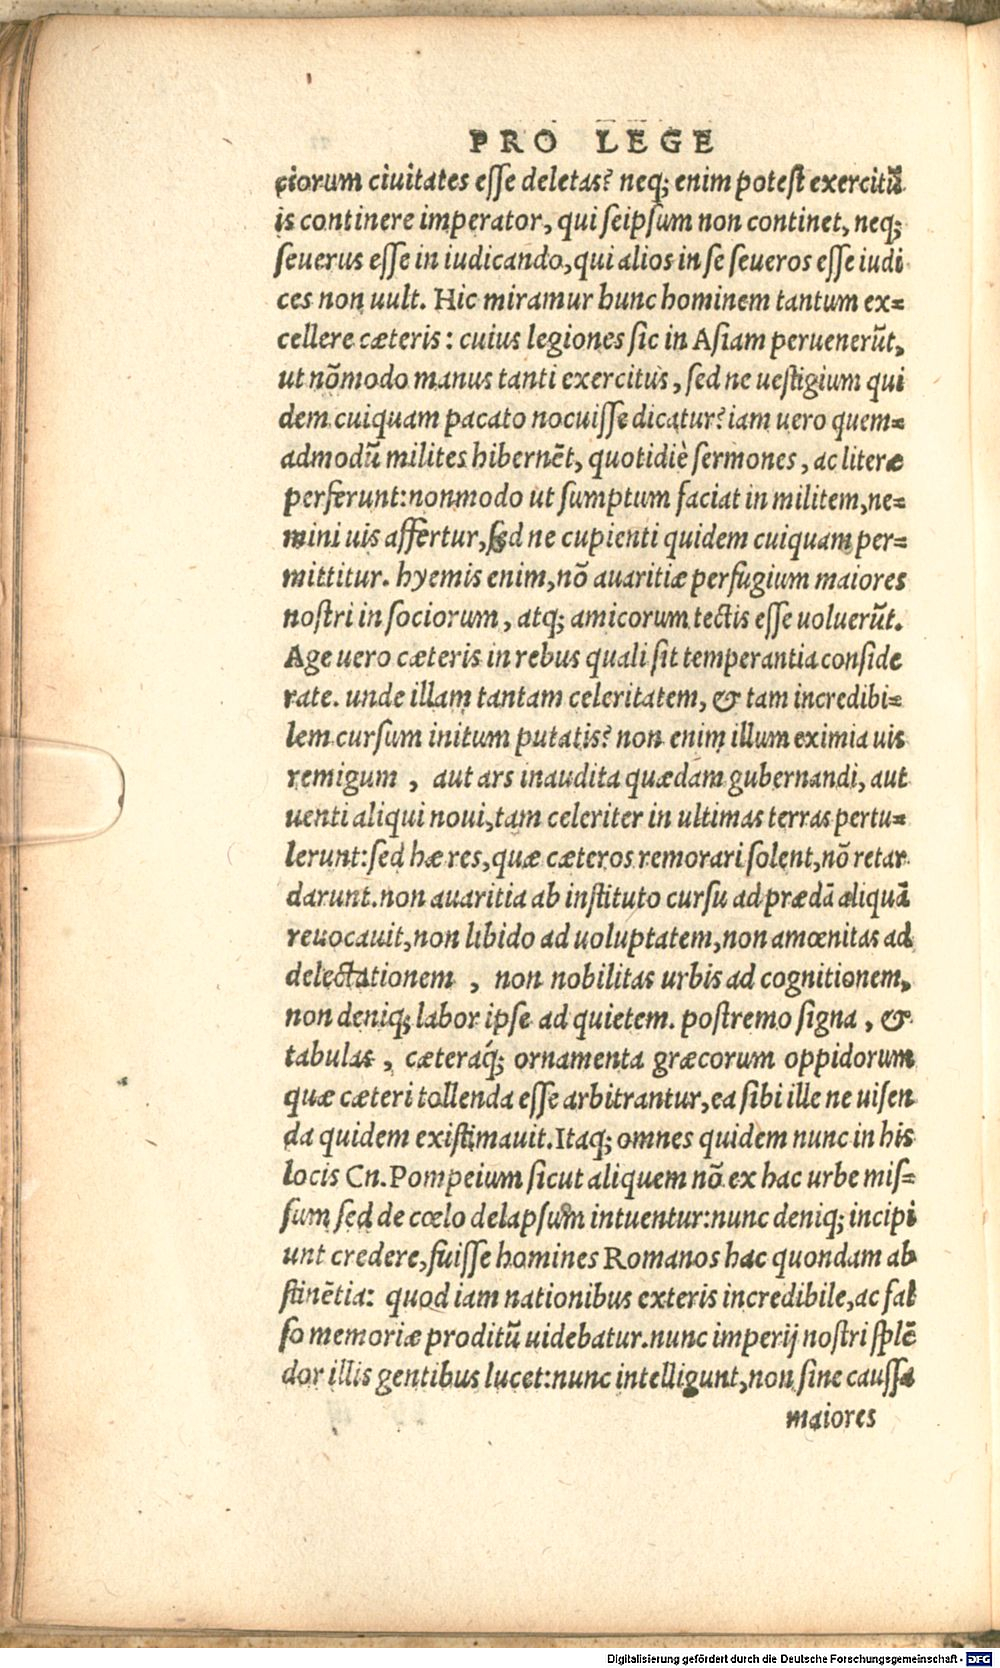 PRO LEGE
ciorum ciuitates esse deletas? neq; enim potest exercitū
is continere imperator, qui seipsum non continet, neq;
seuerus esse in iudicando, qui alios in se seueros esse iudi
ces non uult. Hic miramur hunc hominem tantum ex=
cellere cæteris: cuius legiones sic in Asiam peruenerūt,
ut nōmodo manus tanti exercitus, sed ne uestigium qui
dem cuiquam pacato nocuisse dicatur? iam uero quem=
admodū milites hibernēt, quotidiè sermones, ac literæ
perferunt: nonmodo ut sumptum faciat in militem, ne=
mini uis affertur, sed ne cupienti quidem cuiquam per=
mittitur. hyemis enim, nō auaritiæ perfugium maiores
nostri in sociorum, atq; amicorum tectis esse uoluerūt.
Age uero cæteris in rebus quali sit temperantia conside
rate. unde illam tantam celeritatem, & tam incredibi=
lem cursum initum putatis? non enim illum eximia uis
remigum, aut ars inaudita quædam gubernandi, aut
uenti aliqui noui, tam celeriter in ultimas terras pertu=
lerunt: sed hæ res, quæ cæteros remorari solent, nō retar
darunt. non auaritia ab instituto cursu ad prædā aliquā
reuocauit, non libido ad uoluptatem, non amœnitas ad
delectationem, non nobilitas urbis ad cognitionem,
non deniq; labor ipse ad quietem. postremo signa, &
tabulas, cæteraq́; ornamenta græcorum oppidorum
quæ cæteri tollenda esse arbitrantur, ea sibi ille ne uisen
da quidem existimauit. Itaq; omnes quidem nunc in his
locis Cn. Pompeium sicut aliquem nō ex hac urbe mis=
sum sed de cœlo delapsum intuentur: nunc deniq; incipi
unt credere, fuisse homines Romanos hac quondam ab
stinētia: quod iam nationibus exteris incredibile, ac fal
so memoriæ proditū uidebatur. nunc imperij nostri splē
dor illis gentibus lucet: nunc intelligunt, non sine caussa
maiores
Digitalisierung gefördert durch die Deutsche Forschungsgemeinschaft - DFG